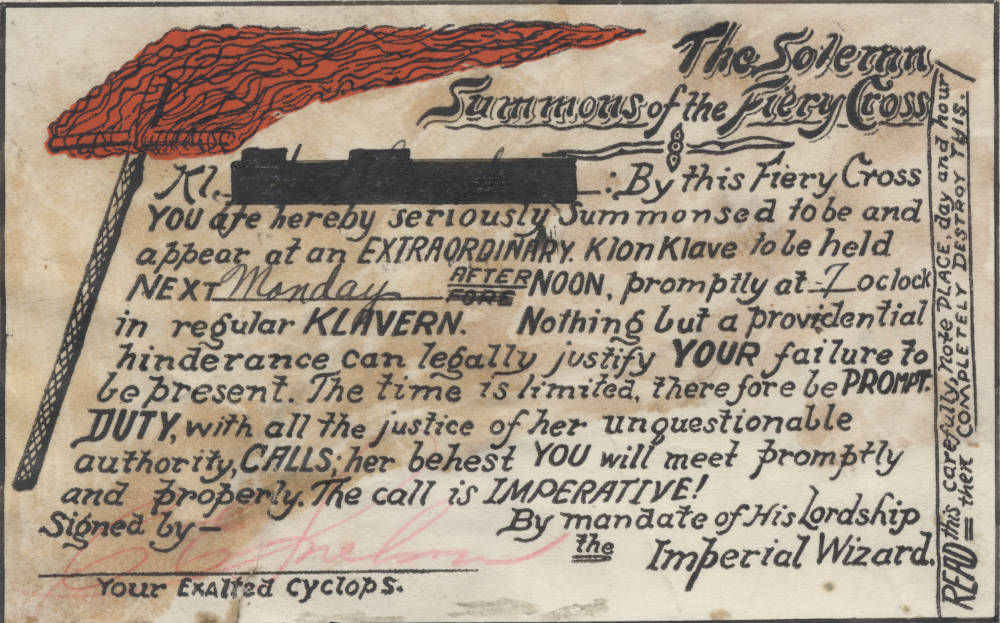 The Solemn
Summons of the Fiery Cross
Kl. : By this Fiery Cross
YOU are hereby seriously Summonsed to be and
appear at an EXTRAORDINARY Klonklave to be held
NEXT Monday AFTER NOON, promptly at 7 oclock
FORE
in regular KLAVERN. Nothing but a providential
hinderance can legally justify YOUR failure to
be present. The time is limited, therefore be PROMPT.
DUTY, with all the justice of her unquestionable
authority, CALLS; her behest YOU will meet promptly
and properly. The call is IMPERATIVE!
Signed by — By mandate of His Lordship
the Imperial Wizard.
Your Exalted Cyclops.
READ this carefully, note PLACE, day and hour
= then COMPLETELY DESTROY THIS.